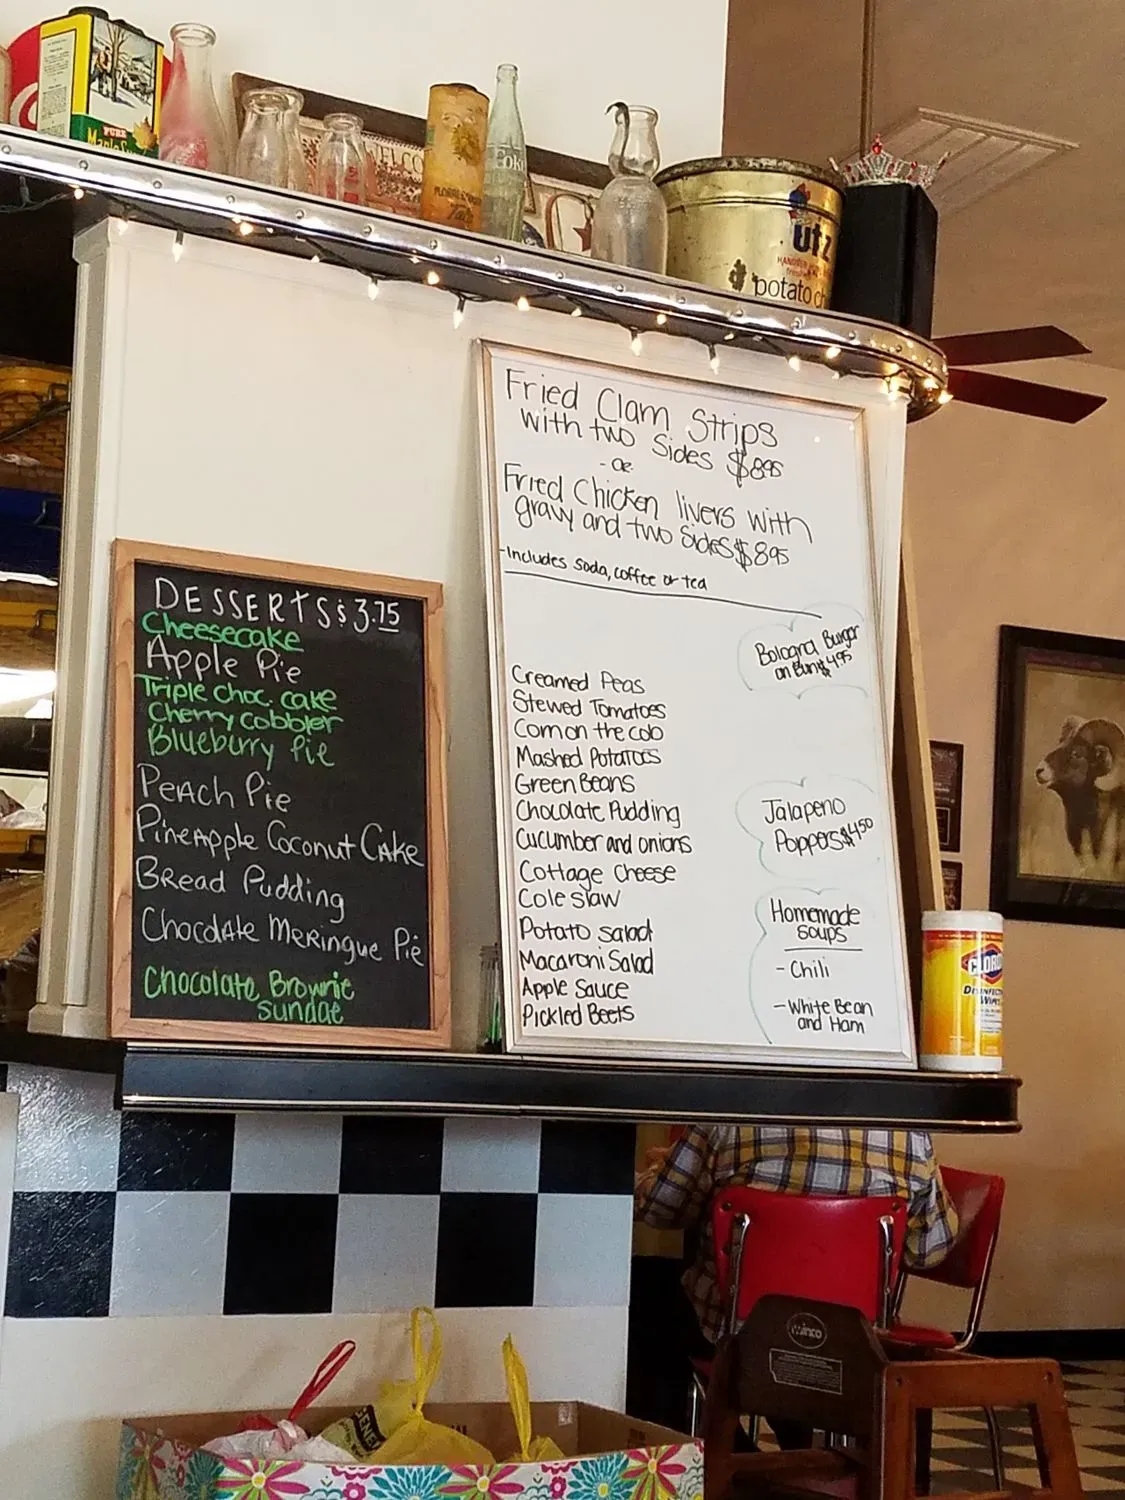 PURE
COKE
utz
potato ch
DESSERTS $ 3.75
Cheesecake
Apple Pie
Triple choc. cake
Cherry cobbler
Blueberry Pie
Peach Pie
Pineapple Coconut Cake
Bread Pudding
Chocolate Meringue Pie
Chocolate Brownie
Sundae
Fried Clam Strips
with two Sides $8.95
- OR -
Fried Chicken livers with
gravy and two Sides $8.95
-Includes soda, coffee or tea
Bologna Burger
on Bun $4.95
Creamed Peas
Stewed Tomatoes
Corn on the cob
Mashed Potatoes
Green Beans
Chocolate Pudding
Cucumber and onions
Cottage Cheese
Coleslaw
Potato salad
Macaroni Salad
Apple Sauce
Pickled Beets
Jalapeno
Poppers $4.50
Homemade
soups
- Chili
- White Bean
and Ham
CLORO
winco